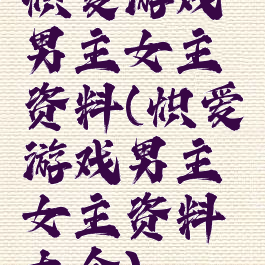 炽爱游戏
男主女主
资料(炽爱
游戏男主
女主资料
大全)